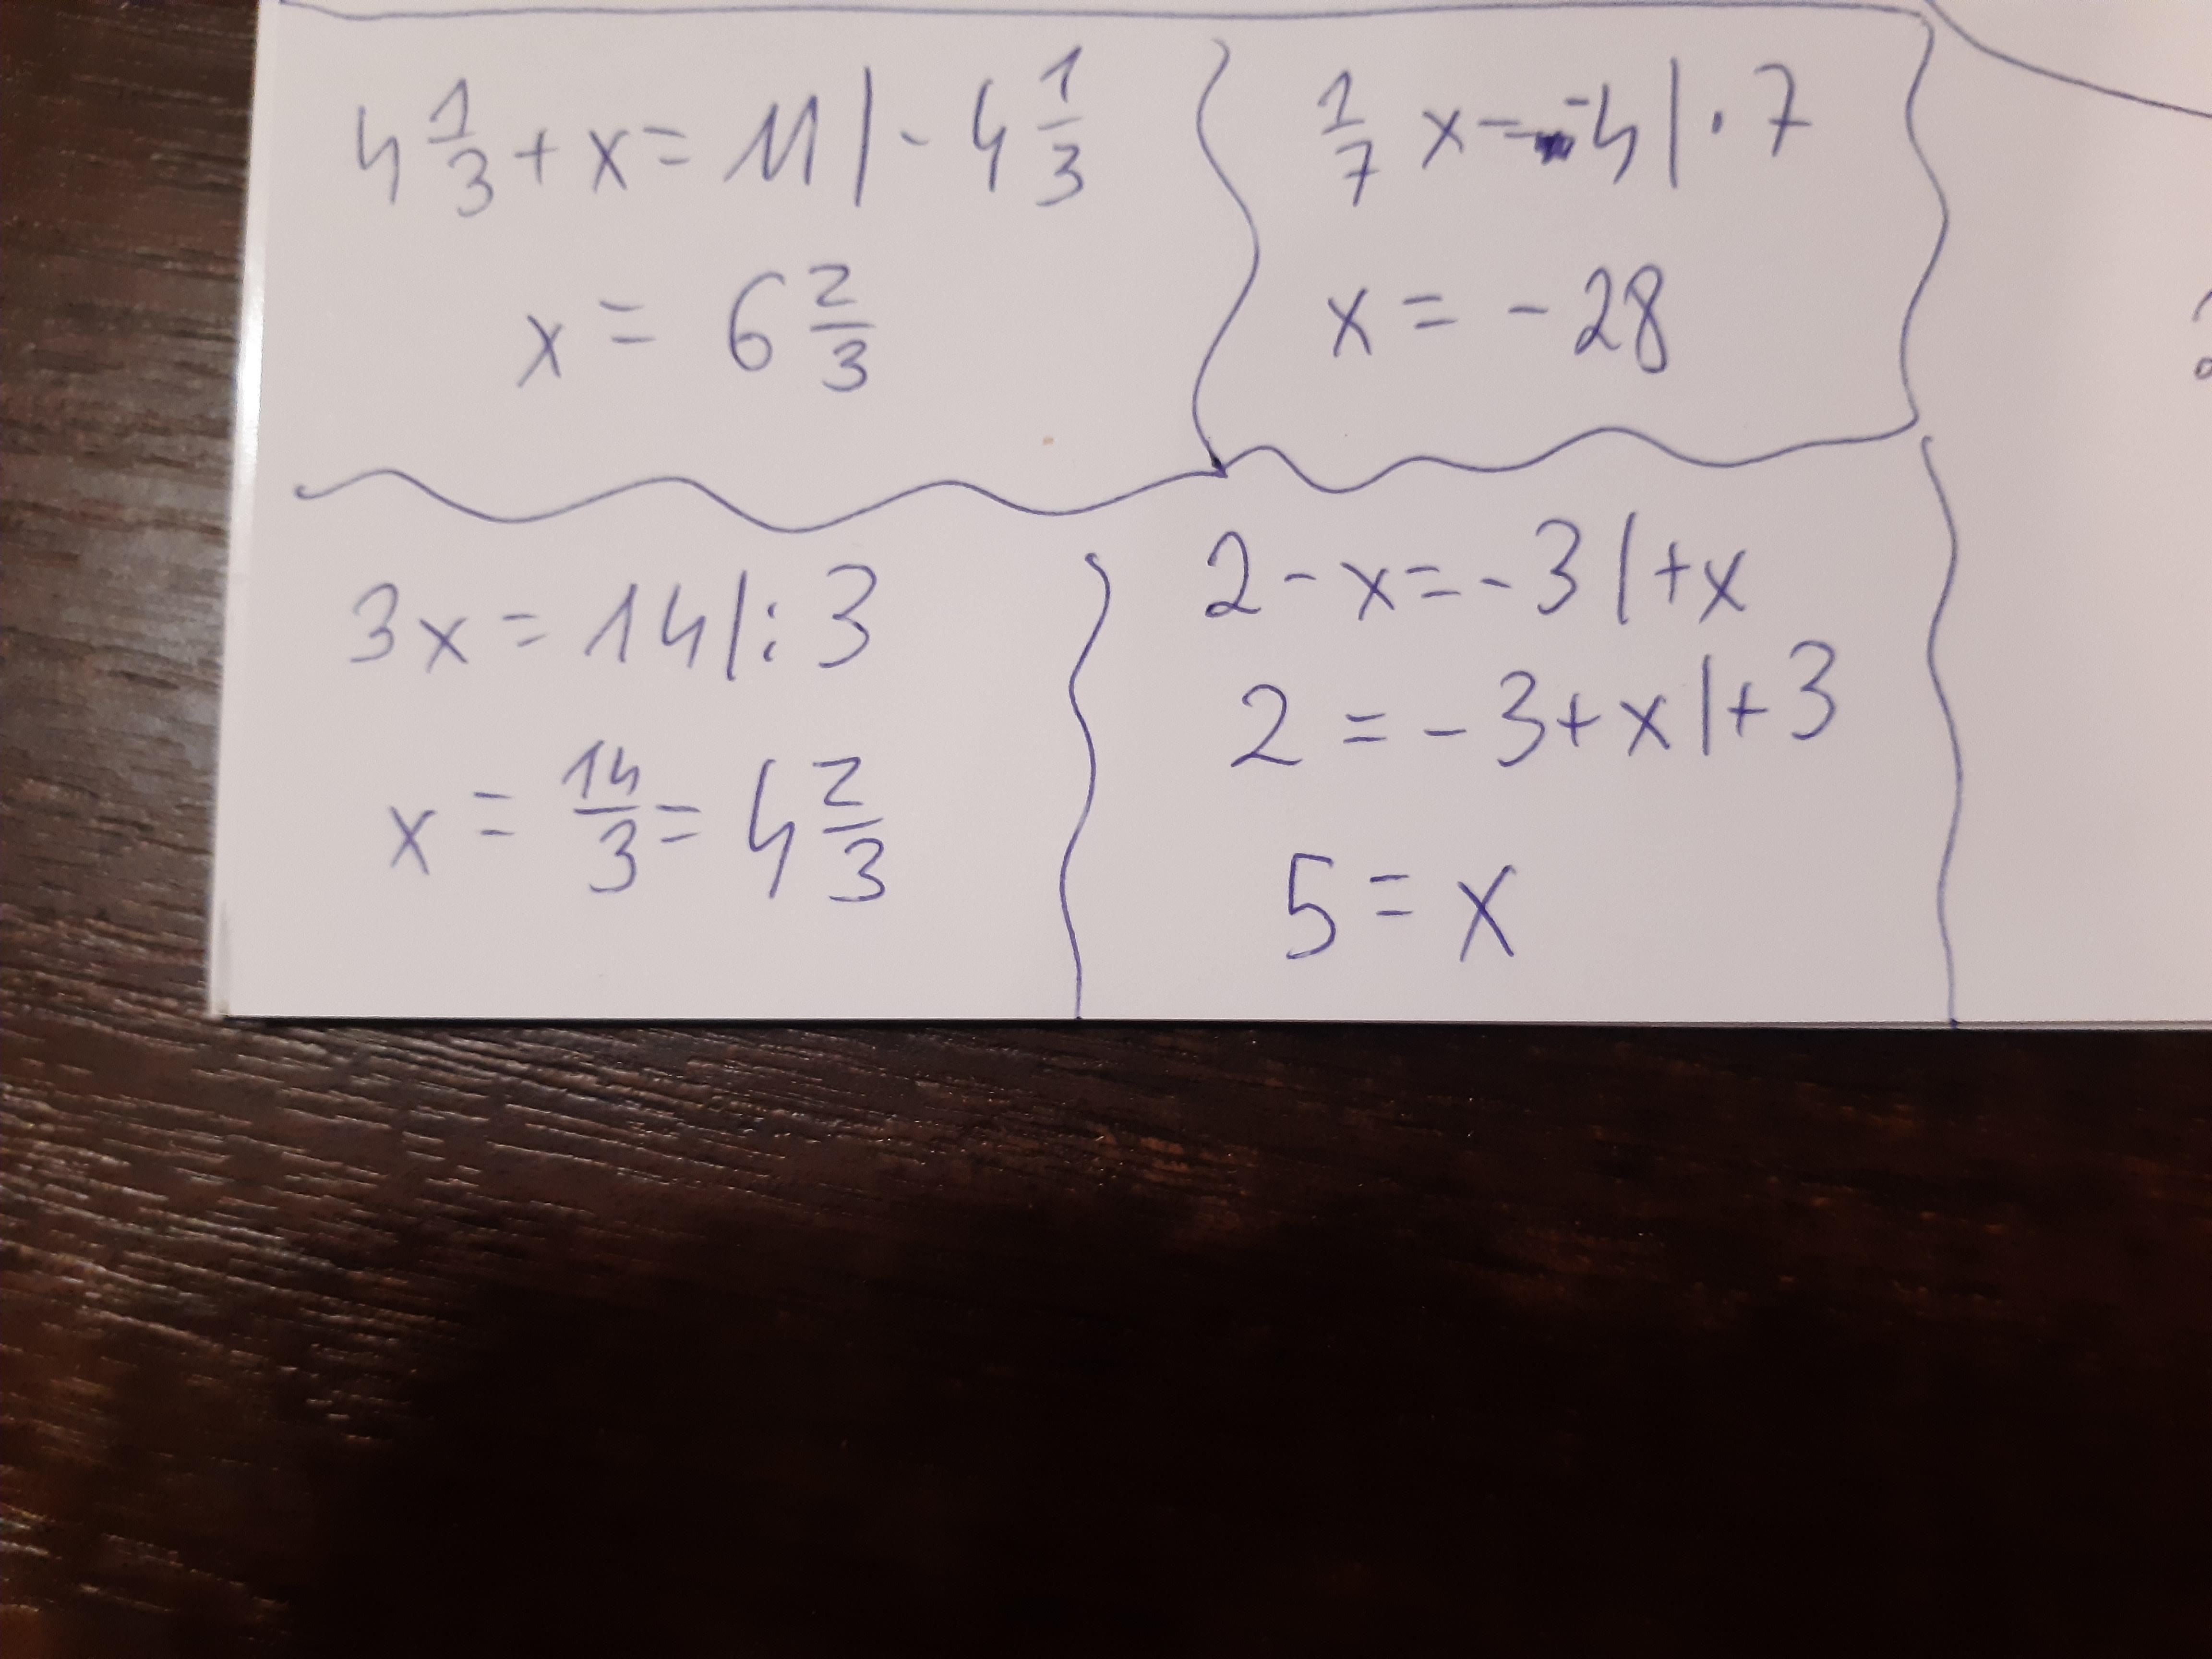 4 1/3 + x = 11 | - 4 1/3
x = 6 2/3
1/7 x = -4 | · 7
x = - 28
3x = 14 | : 3
x = 14/3 = 4 2/3
2 - x = - 3 | + x
2 = - 3 + x | + 3
5 = x